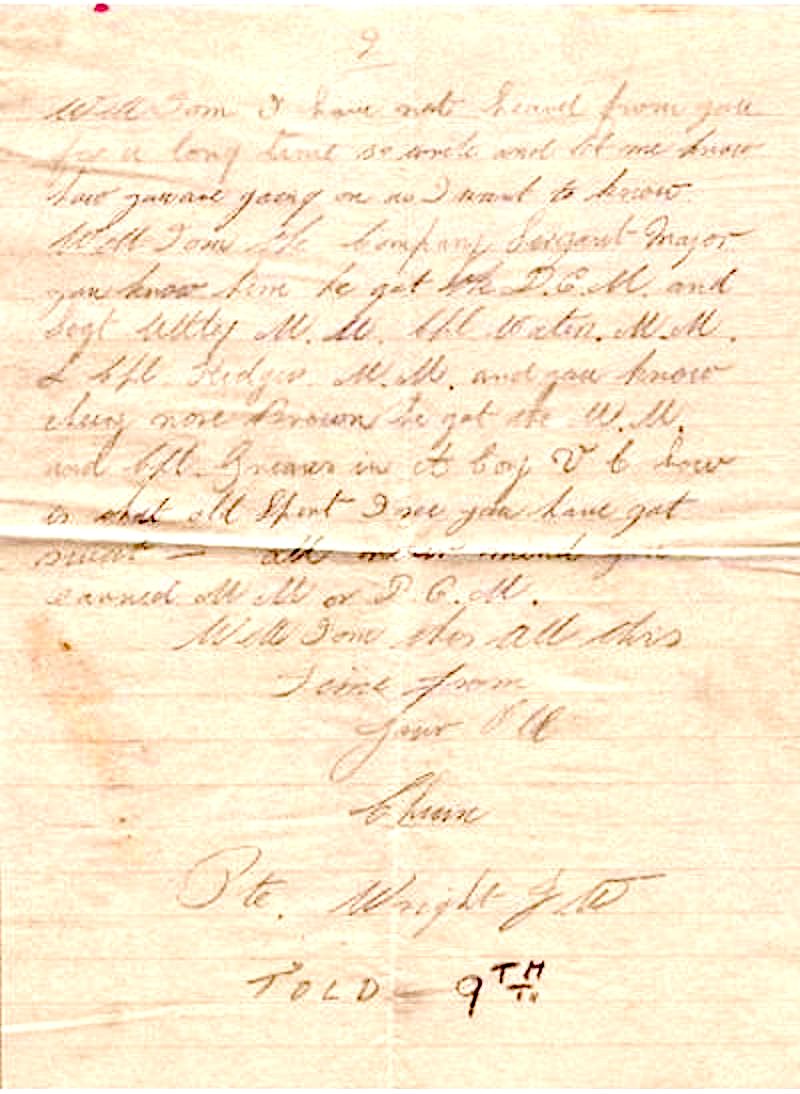 2
Well Tom I have not heard from you
for a long time so write and let me know
how you are going on as I want to know
Well Tom the Company Sergant Major
you know him he got the D.C.M. and
Segt Uttley M.M. Cpl Waton. M.M.
L Cpl. Hedges M.M. and you know
nore Brown he got the M.M.
and Cpl. in A Coy V C how
is that old I see you have got
all
earned M M or D.C.M.
Well Tom this all this
Time from
your Old
Chum
Pte. Wright J W
TOLD - 9TH